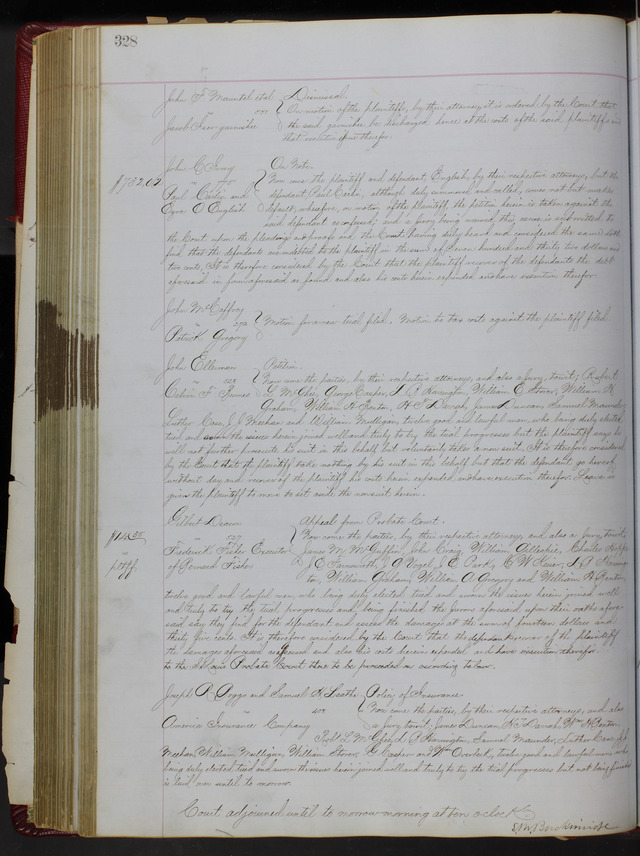 328
John F. Maundel et al. Dismissal.
On motion of the plaintiffs, by their attorney, it is ordered by the Court that
Jacob garnishee the said garnishee be discharged hence at the costs of the said plaintiffs and
that execution issue therefor.
John C. On Note.
$732,02 Now come the plaintiff and defendant, English, by their respective attorneys, but the
Paul and defendant Paul although duly summoned and called, comes not but makes
Ezra O English default, wherefore, on motion of the plaintiff the petition herein is taken against the
said defendant as confessed; and a jury being waived, this cause is submitted to
the Court upon the pleadings and proofs and the Court having duly heard and considered the same doth
find that the defendants are indebted to the plaintiff in the sum of Seven hundred and thirty two dollars and
two cents, It is therefore considered by the Court that the plaintiff recover of the defendants the debt
aforesaid in form aforesaid so found and also his costs herein expended and have execution therefor.
John McCaffrey
Motion for a new trial filed. Motion to tax costs against the plaintiff filed.
Patrick Gregory
John Ellerman Petition.
Now come the parties, by their respective attorneys, and also a jury, towit; Robert
Calvin F. G. McGhee, George Casper, S. P. Hannington, William E Stover, William H.
Graham, William H. Benton, H. T. Darrah, James Duncan, Samuel Maunder
Luther Case, J. J. Meehan and William Mulligan, twelve good and lawful men, who being duly elected
tried and sworn the issues herein joined well and truly to try the trial progresses but the plaintiff says he
will not further prosecute his suit in this behalf but voluntarily takes a non suit. It is therefore considered
by the Court that the plaintiff take nothing by his suit in this behalf but that the defendant go hence
without day and recover of the plaintiff his costs herein expended and have execution therefor. Leave is
given the plaintiff to move to set aside the nonsuit herein.
Gilbert Deacon Appeal from Probate Court.
$14.35 Now come the parties, by their respective attorneys, and also a jury, towit;
Frederick Fisher Executor James M. McGuffin, John Craig, William Gillespie, Charles
of Bernard Fisher J. C. Farnsworth, J. A. Vogel, J. E. Park, C. W. S. P. Hanning-
ton, William Graham, William A. Gregory and William H. Benton,
twelve good and lawful men, who being duly elected tried and sworn the issues herein joined well
and truly to try the trial progresses and being finished the jurors aforesaid upon their oaths afore-
said say they find for the defendant and assess the damages at the sum of fourteen dollars and
thirty five cents. It is therefore considered by the Court that the defendant recover of the plaintiff
the damages aforesaid assessed and also his costs herein expended and have execution therefor
to the St Louis Probate Court there to be proceeded on according to law.
Joseph A. and Samuel H. Leathe Policy of Insurance
Now come the parties, by their respective attorneys, and also
America Insurance Company a jury, towit, James Duncan, H. T. Darrah, Wm H. Benton
Robt G. McGhee, S. P. Hannington, Samuel Maunder, Luther Case, J. J.
Meehan, William Mulligan, William Stover, G. Casper and Wm twelve good and lawful men who
being duly elected tried and sworn the issues herein joined well and truly to try the trial progresses but not being finished
is laid over until to morrow.
Court adjourned until to morrow morning at ten o'clock